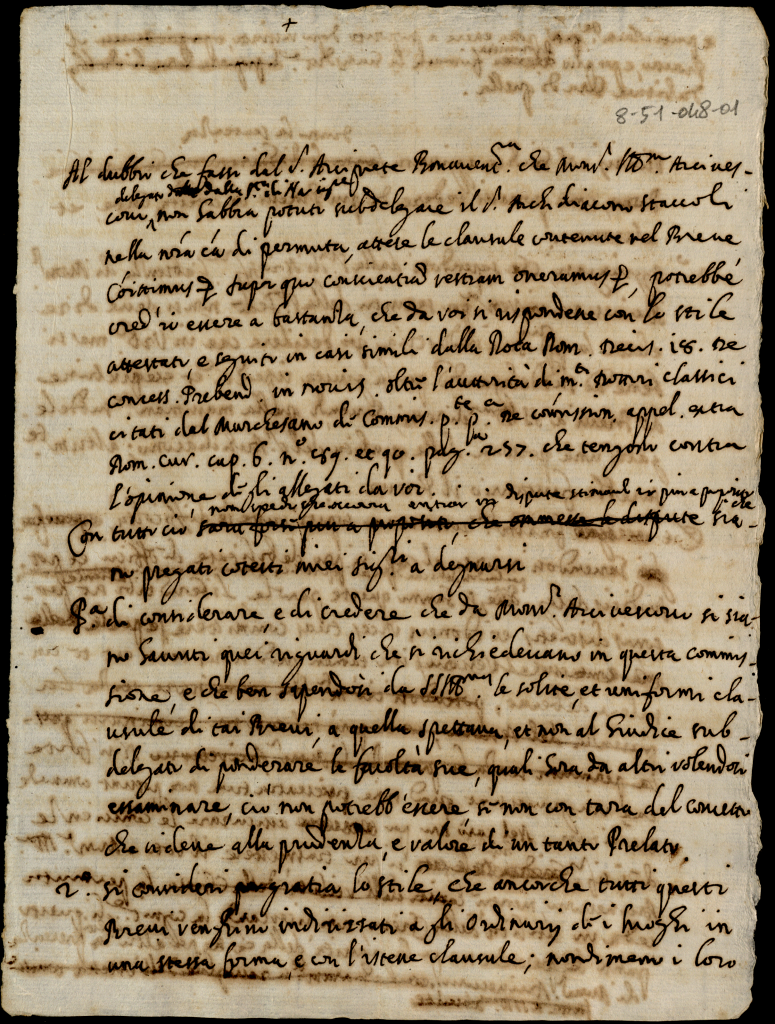 +
8-51-048-01
Al dubbio che fassi dal S. Arciprete Bonavent. che Mons. Ill.mo Arcives-
delegato dalla
covo non habbia potuto subdelegare il S. Archidiacono Staccoli
nella nora cã di permuta, attese le clausule contenute nel Breve
super quo conscientiã vestram oneramus, potrebbe
essere a bastanza, che da voi si rispondesse con lo stile
attestato, e seguito in casi simili dalla Rota Rom. decis. 18. de
concess. Prebend. in novis. oltre l'auttorità di m.ti Dottori classici
citati dal Marchesano de Commis. p.te p.a de cõmission. appel. extra
Rom. Cur. cap. 6. n.o 89. et 90. pag. 257. che tengono contra
l'opinione de gli allegati da voi.
dispute stimand
Con tutto ciò, sarà forse più a proposito, che ommesse le dispute sia-
no pregati cotesti miei sig.ri a degnarsi
P.a di considerare, e di credere che da Mons. Arcivescovo si sia-
no havuti quei riguardi che si richiedevano in questa commis-
sione, e che ben sapendosi da le solite, et uniformi cla-
usule di tai Brevi, a quella spettava, et non al Giudice sub-
delegato di ponderare le facoltà sue, quali hora da altri volendosi
essaminare, ciò non potrebb'essere, se non con tara del concetto
che si deve alla prudenza, e valore di un tanto Prelato.
2.o si consideri per gratia lo stile, che ancorche tutti questi
Brevi venghino indirizzati a gli Ordinarij de i luoghi in
una stessa forma, e con l'istesse clausule; nondimeno i loro